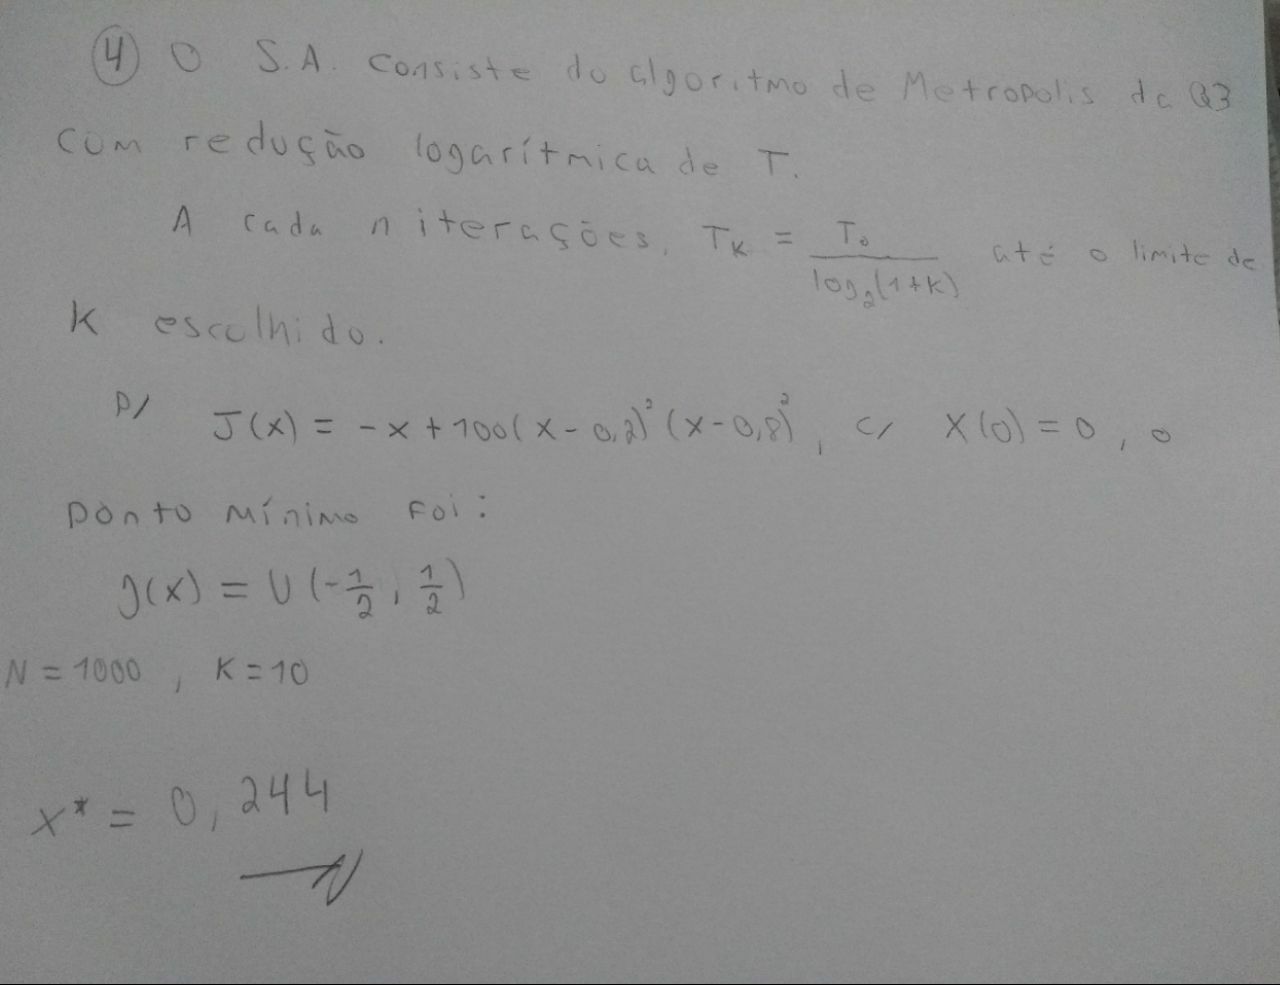 ④ O S.A. consiste do algoritmo de Metropolis da Q3
com redução logarítmica de T.
A cada n iterações, T_K = T_0 / log_2(1+K) até o limite de
K escolhido.
p/ J(x) = -x + 100(x - 0,2)² (x - 0,8)², c/ X(0) = 0, o
ponto mínimo foi:
g(x) = U(-1/2, 1/2)
N = 1000, K = 10
x* = 0,244